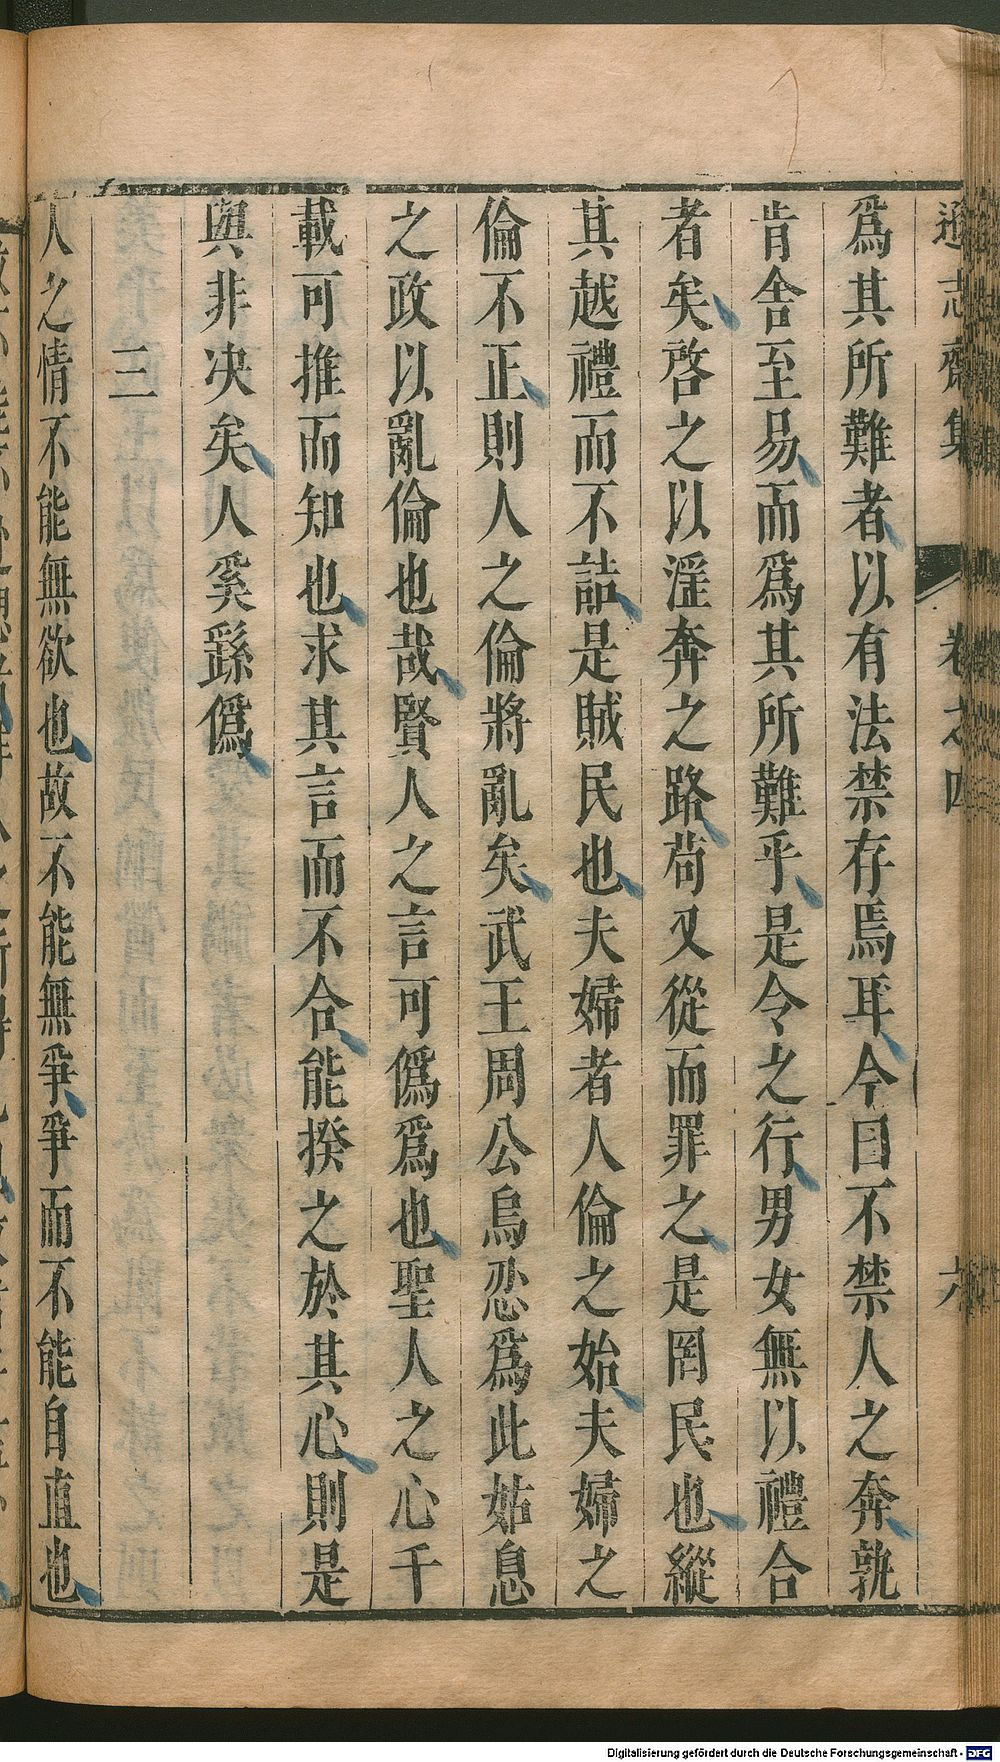 遜志齋集 卷之四 六
爲其所難者以有法禁存焉耳今曰不禁人之奔孰
肯舍至易而爲其所難乎是令之行男女無以禮合
者矣啓之以淫奔之路苟又從而罪之是罔民也縱
其越禮而不詰是賊民也夫婦者人倫之始夫婦之
倫不正則人之倫將亂矣武王周公烏忍爲此姑息
之政以亂倫也哉賢人之言可僞爲也聖人之心千
載可推而知也求其言而不合能揆之於其心則是
與非決矣人奚繇僞
三
人之情不能無欲也故不能無爭爭而不能自直也
Digitalisierung gefördert durch die Deutsche Forschungsgemeinschaft - DFG